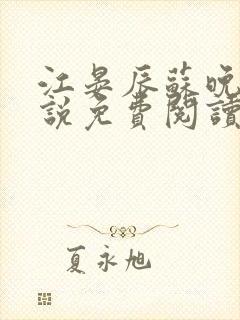 江晏辰蘇晚
說免費閱讀
夏永旭